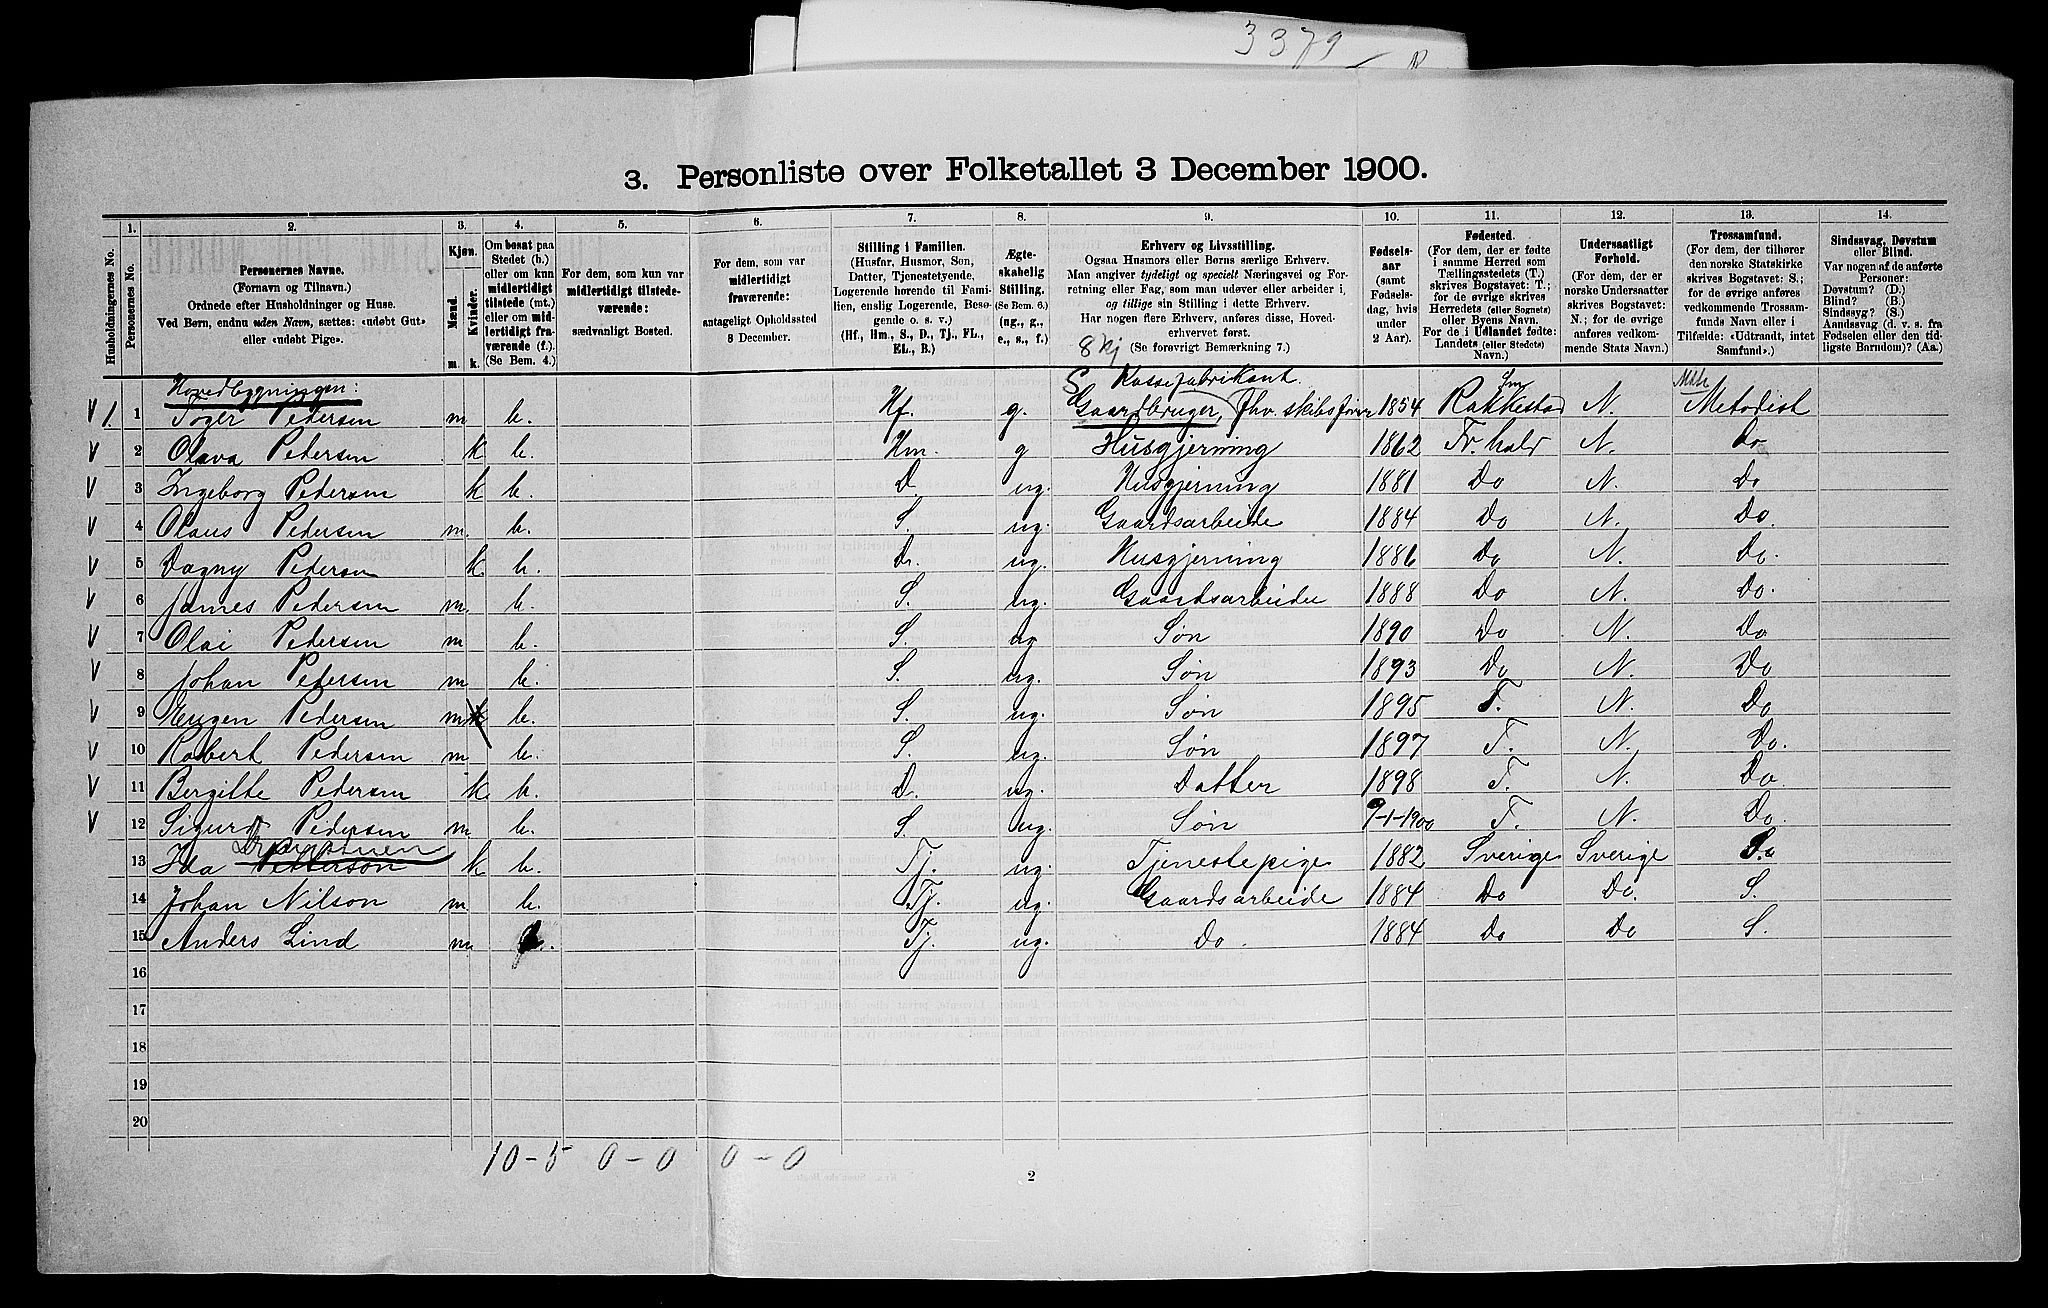 3379
3. Personliste over Folketallet 3 December 1900.
1. 2. 3. 4. 5. 6. 7. 8. 9. 10. 11. 12. 13. 14.
Husholdningernes No.
Personernes No.
Personernes Navne.
(Fornavn og Tilnavn.)
Ordnede efter Husholdninger og Huse.
Ved Børn, endnu uden Navn, sættes: «udøbt Gut»
eller «udøbt Pige».
Kjøn.
Mænd. Kvinder.
m. k.
Om bosat paa
Stedet (b.)
eller om kun
midlertidigt
tilstede (mt.)
eller om mid-
lertidigt fra-
værende (f.).
(Se Bem. 4.)
For dem, som kun var
midlertidigt tilstede-
værende:
sædvanligt Bosted.
For dem, som var
midlertidigt
fraværende:
antageligt Opholdssted
3 December.
Stilling i Familien.
(Husfar, Husmor, Søn,
Datter, Tjenestetyende,
Logerende hørende til Fami-
lien, enslig Logerende, Besø-
gende o. s. v.)
(Hf, Hm., S., D., Tj., FL.,
EL., B.)
Ægte-
skabelig
Stilling.
(Se Bem. 6.)
(ug., g.,
e., s., f.)
Erhverv og Livsstilling.
Ogsaa Husmors eller Børns særlige Erhverv.
Man angiver tydeligt og specielt Næringsvei og For-
retning eller Fag, som man udøver eller arbeider i,
og tillige sin Stilling i dette Erhverv.
Har nogen flere Erhverv, anføres disse, Hoved-
erhvervet først.
(Se forøvrigt Bemærkning 7.)
8 kj
Fødsels-
aar
(samt
Fødsels-
dag, hvis
under
2 Aar).
Fødested.
(For dem, der er fødte
i samme Herred som
Tællingsstedets (T.)
skrives Bogstavet: T.;
for de øvrige skrives
Herredets (eller Sognets)
eller Byens Navn.
For de i Udlandet fødte:
Landets (eller Stedets)
Navn.)
Undersaatligt
Forhold.
(For dem, der er
norske Undersaatter
skrives Bogstavet:
N.; for de øvrige
anføres vedkom-
mende Stats Navn.)
Trossamfund.
(For dem, der tilhører
den norske Statskirke
skrives Bogstavet: S.;
for de øvrige anføres
vedkommende Trossam-
funds Navn eller i
Tilfælde: «Udtraadt, intet
Samfund».)
Sindssvag, Døvstum
eller Blind.
Var nogen af de anførte
Personer:
Døvstum? (D.)
Blind? (B.)
Sindssyg? (S.)
Aandssvag (d. v. s. fra
Fødselen eller den tid-
ligste Barndom)? (Aa.)
Hovedbygningen: S Kassefabrikant. Sm Meth
V 1. 1 Toger Pedersen m b. Hf. g. Gaardbruger, fhv. skibsfører 1854 Rakkestad N. Metodist
V 2 Olava Pedersen k b. Hm. g Husgjerning 1862 Fr. hald N. Do
V 3 Ingeborg Pedersen k b. D ug. Husgjerning 1881 Do N. Do
V 4 Olaus Pedersen m. b. S. ug. Gaardsarbeide 1884 Do N. Do.
V 5 Dagny Pedersen k. b. D. ug. Husgjerning 1886 Do N. Do.
V 6 James Pedersen m. b. S. ug. Gaardsarbeide 1888 Do N. Do.
V 7 Olai Pedersen m b. S. ug Søn 1890 Do N. Do
V 8 Johan Pedersen m b. S. ug. Søn 1893 Do N. Do
V 9 Eugen Pedersen m k b. S. ug. Søn 1895 T. N. Do
V 10 Robert Pedersen m b. S. ug. Søn 1897 T. N. Do.
V 11 Bergitte Pedersen k b. D. ug. Datter 1898 T. N. Do
V 12 Sigurd Pedersen m b. S. ug. Søn 9-1-1900 T. N. Do.
13 Ida Petterson k b. Tj. ug. Tjenestepige 1882 Sverige Sverige Do
14 Johan Nilson m b. Tj. ug. Gaardsarbeide 1884 Do Do. S.
15 Anders Lind m b. Tj. ug. Do. 1884 Do Do S.
16
17
18
19
20
10-5 0-0 0-0
2